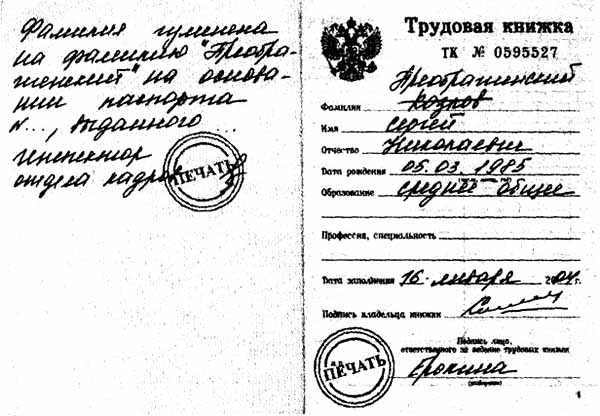 Фамилия изменена
на фамилию "Преобра-
женский" на основа-
нии паспорта
№..., выданного ...
Инспектор
отдела кадров
ПЕЧАТЬ
Трудовая книжка
ТК № 0595527
Преображенский
Фамилия Козлов
Имя Сергей
Отчество Николаевич
Дата рождения 05.03.1985
Образование среднее общее
Профессия, специальность
Дата заполнения 16 января 2004 г.
Подпись владельца книжки
Подпись лица,
ответственного за ведение трудовых книжек
ПЕЧАТЬ
Ерохина
(разборчиво)
1